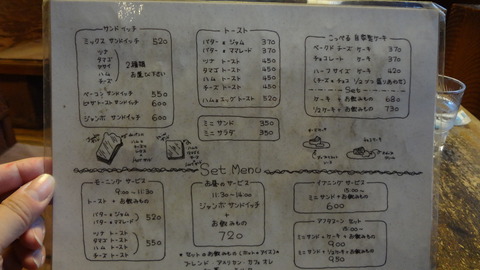 サンドイッチ
ミックス サンドイッチ 520
ツナ
タマゴ
ヤサイ
ハム
チーズ
2種類
お選び下さい
ベーコン サンドイッチ 550
ピザトーストサンドイッチ 600
ジャンボ サンドイッチ 600
トースト
バター・ジャム 370
バター・ママレード 370
ツナ トースト 450
タマゴ トースト 450
ハム トースト 450
チーズ トースト 450
ハムエッグ トースト 520
ミニ サンド 350
ミニ サラダ 350
こっぺる 自家製ケーキ
ベークド チーズ ケーキ 370
チョコレート ケーキ 370
ハーフサイズ ケーキ 420
Set
ケーキ + お飲みもの 680
お飲みもの 730
Set Menu
モーニング サービス
9:00〜11:30
トースト + お飲みもの
バター + ジャム
バター + ママレード
520
ツナ トースト
タマゴ トースト
ハム トースト
チーズ トースト
550
お昼のサービス
11:30〜14:00
ジャンボ サンドイッチ
+
お飲みもの
720
イブニング サービス
ミニ サンド + お飲みもの
600
アフタヌーン セット
ミニサンド + ケーキ + お飲みもの
900
950
* セットのお飲みもの (ホット or アイス) *
ブレンド・アメリカン・カフェオレ